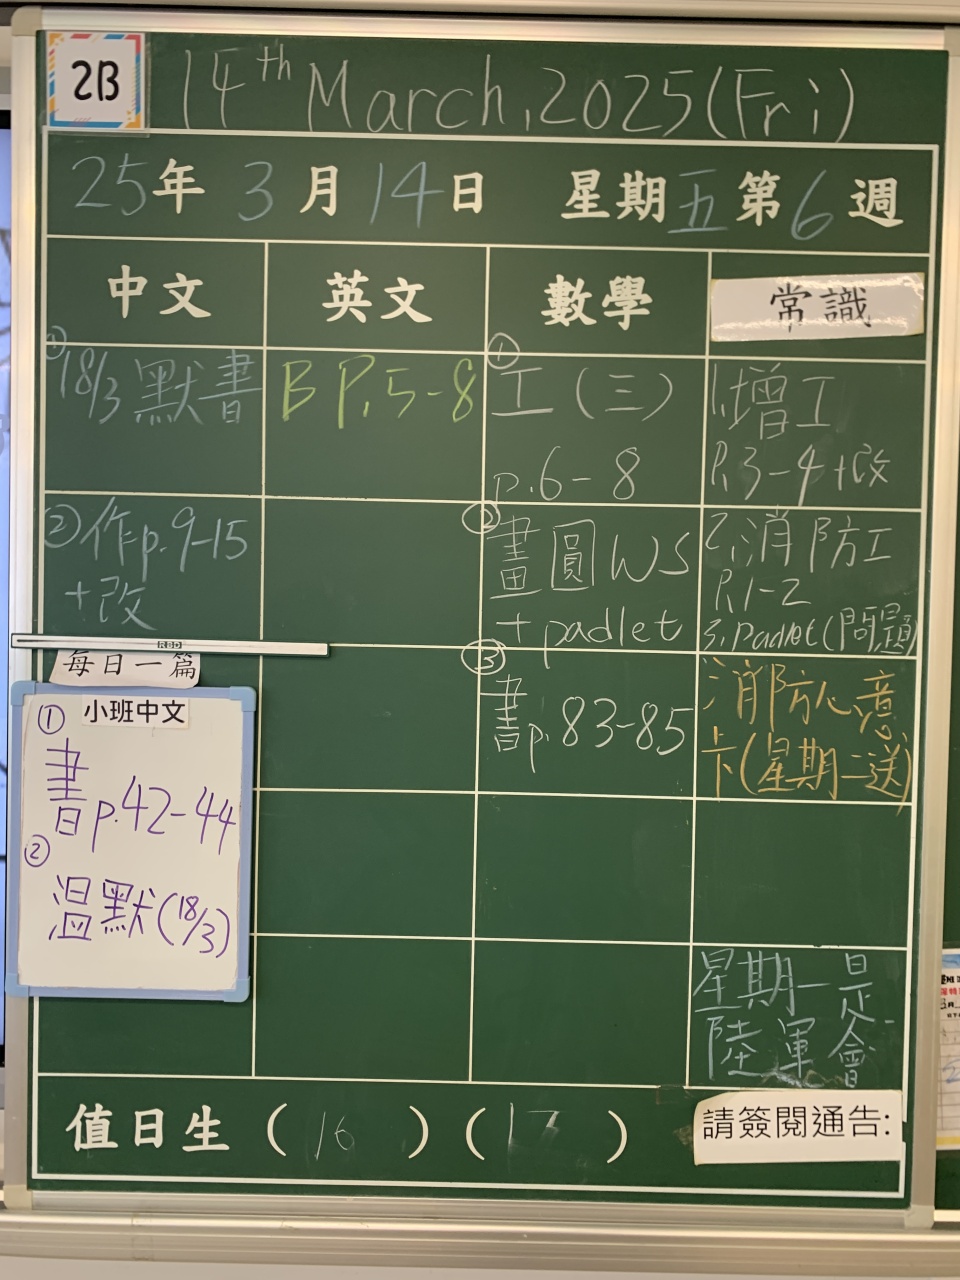 2B
14th March, 2025 (Fri)
25年 3月 14日 星期五 第6週
中文 英文 數學 常識
① 18/3 默書
② 作p.9-15
+改
每日一篇
小班中文
① 書p.42-44
② 温默(18/3)
B P.5-8
① 工(三)
p.6-8
② 畫圓WS
+padlet
③ 書p.83-85
1.增工
P.3-4+改
2.消防工
P.1-2
3.Padlet(問題)
消防心意
卡(星期二送)
星期一是
陸軍會
值日生 (16) (17)
請簽閱通告: